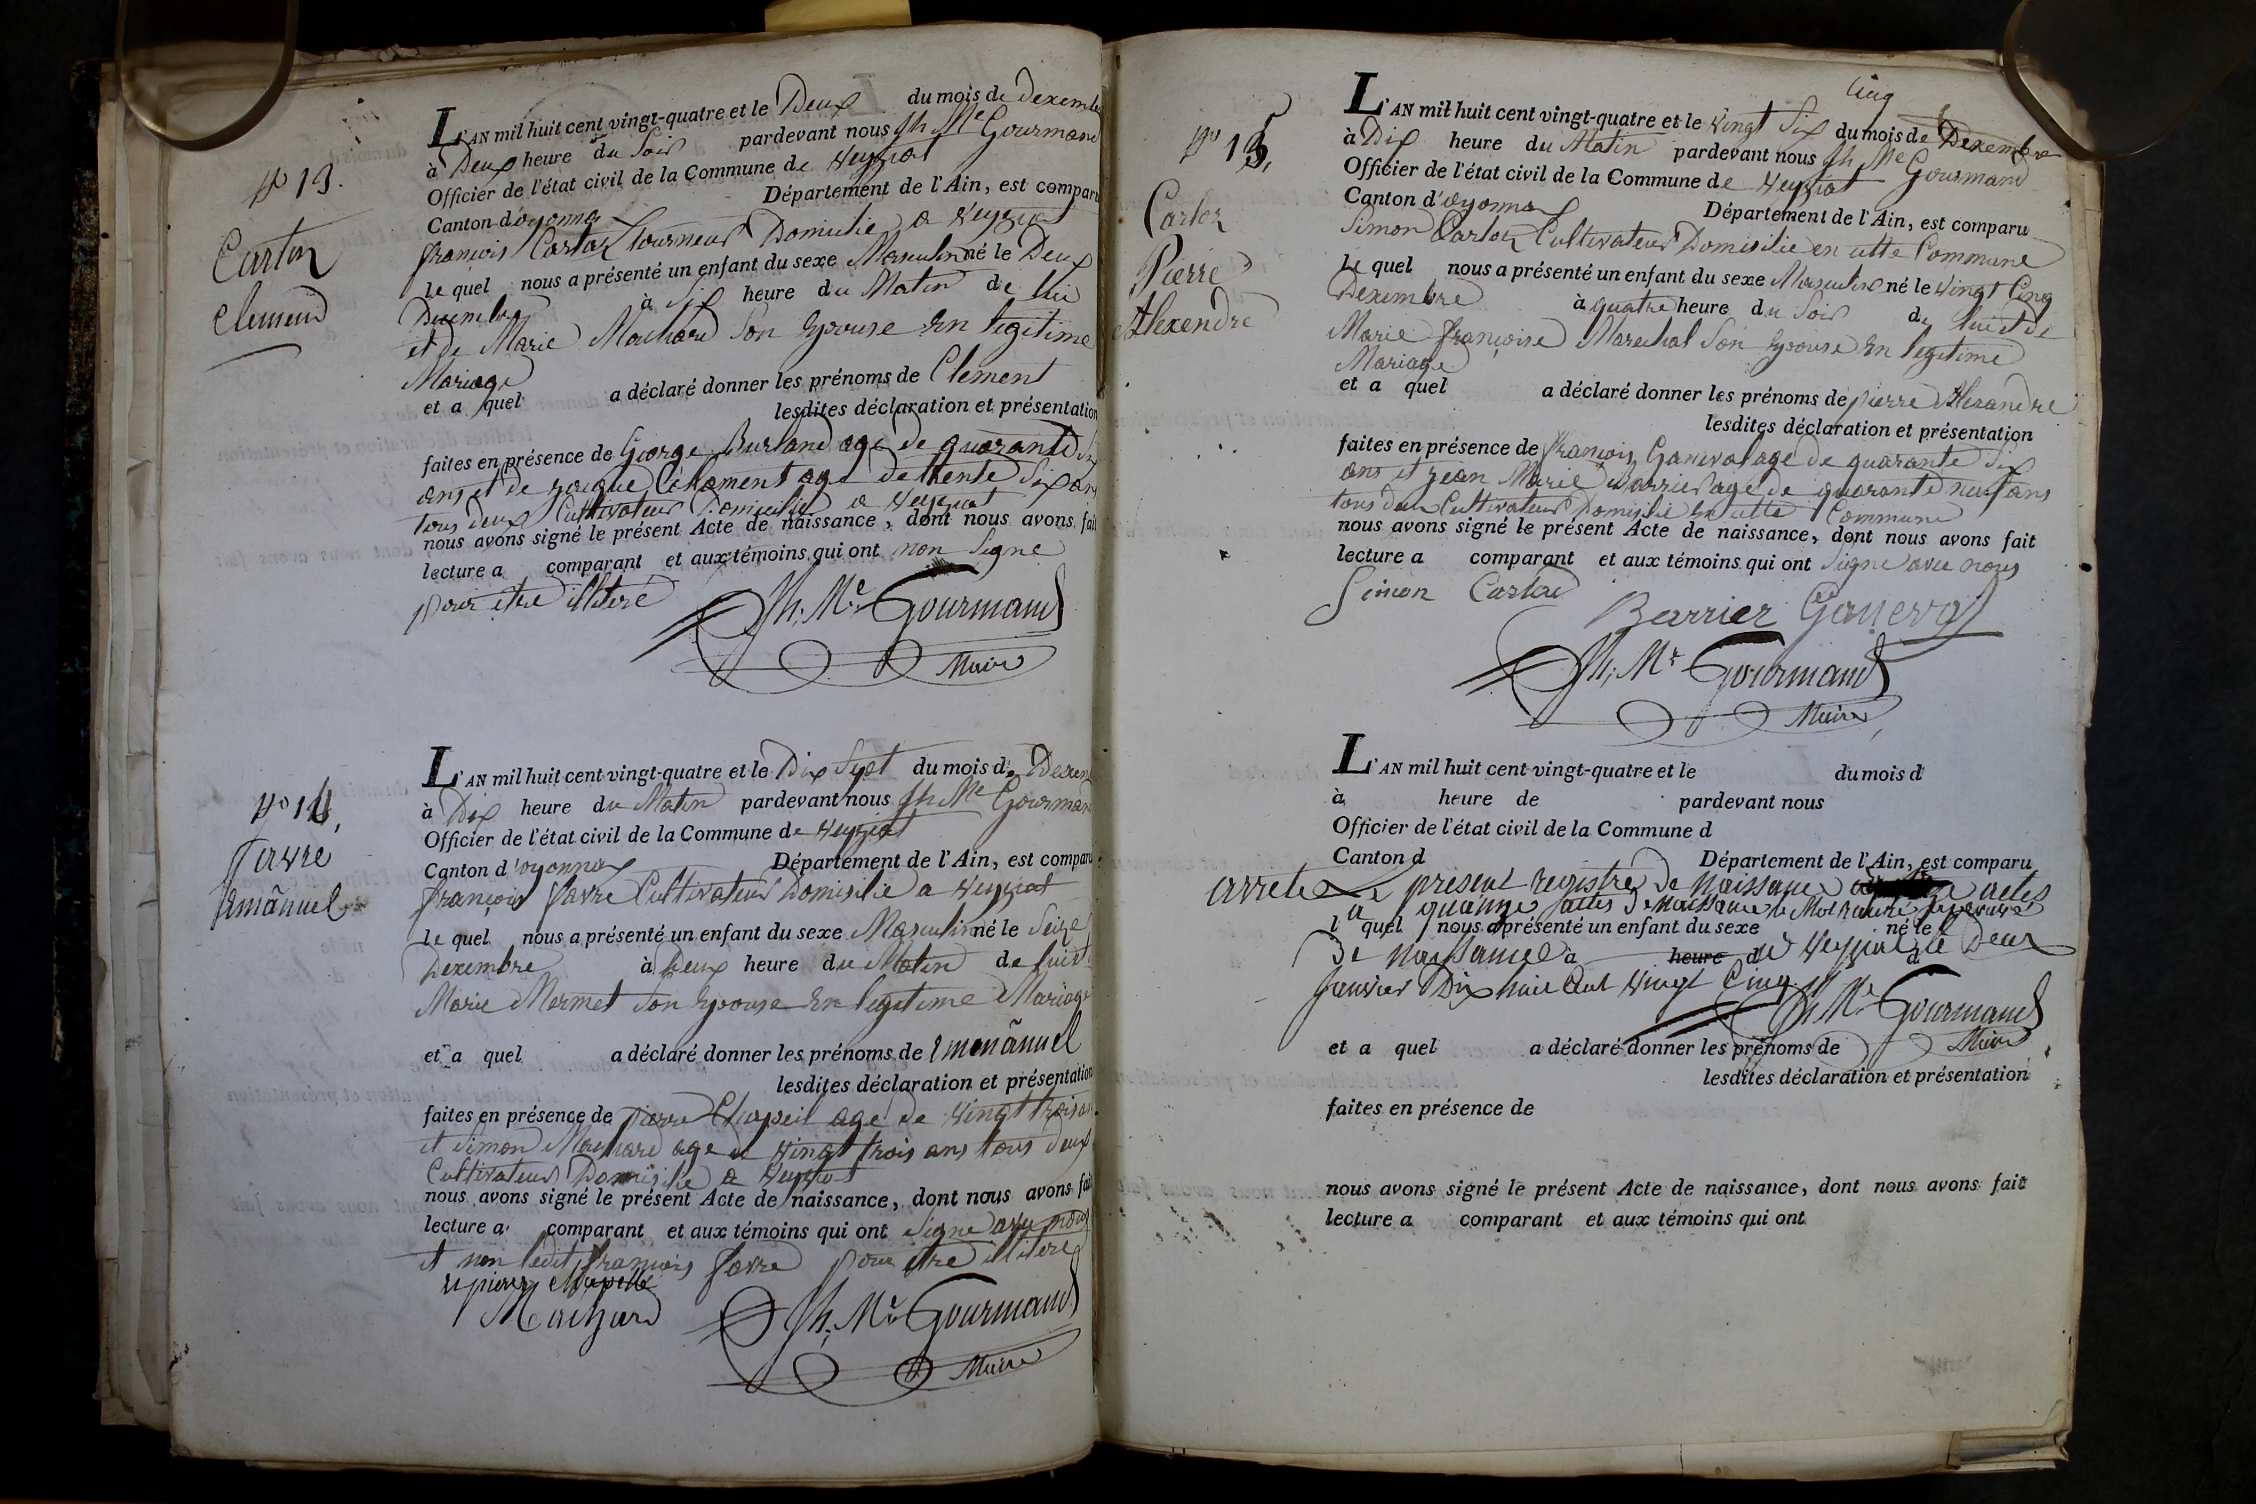 N° 13.
Cartoz
Clement
L'AN mil huit cent vingt-quatre et le Deux du mois de Dexembre
à Deux heure du Soir pardevant nous Jh Me Gourmand
Officier de l'état civil de la Commune de Veyziat
Canton d'oyonnax Département de l'Ain, est comparu
françois Cartoz tourneur Domicilie a Veyziat
le quel nous a présenté un enfant du sexe Masculin né le Deux
Decembre à Six heure du Matin de lui
et de Marie Machard Son Epouse En legitime
Mariage
et a quel a déclaré donner les prénoms de Clement
lesdites déclaration et présentation
faites en présence de George Burland age de quarante dix
ans et de age de trente Six ans
tous deux Cultivateur Domicilie a Veyziat
nous avons signé le présent Acte de naissance, dont nous avons fait
lecture a comparant et aux témoins qui ont non Signe
pour etre illitere
Jh. Me Gourmand
Maire
N° 14,
favre
Emãnuel
L'AN mil huit cent vingt-quatre et le Dix Sept du mois de Dexem
à Dix heure du Matin pardevant nous Jh Me Gourmand
Officier de l'état civil de la Commune de Veyziat
Canton d'oyonnax Département de l'Ain, est comparu
françois favre Cultivateur Domicilie a Veyziat
le quel nous a présenté un enfant du sexe Masculin né le Seize
Dexembre à Deux heure du Matin de lui et
Marie Mermet Son Epouse En legitime Mariage
et a quel a déclaré donner les prénoms de Emanãnuel
lesdites déclaration et présentation
faites en présence de pierre Chapeil age de Vingt trois ans
et Simon Machard age de Vingt trois ans tous deux
Cultivateur Domicilie a Veyziat
nous avons signé le présent Acte de naissance, dont nous avons fait
lecture a comparant et aux témoins qui ont Signe avec nous
et non ledit françois favre pour etre illitere
pierre
Machard
Jh. Me Gourmand
Maire
N° 15,
Cartoz
Pierre
Alexendre
Cinq
L'AN mil huit cent vingt-quatre et le Vingt Six du mois de Dexembre
à Dix heure du Matin pardevant nous Jh Me Gourmand
Officier de l'état civil de la Commune de Veyziat
Canton d'oyonnax Département de l'Ain, est comparu
Simon Cartoz Cultivateur Domisilie en cette Commune
le quel nous a présenté un enfant du sexe Masculin né le Vingt Cinq
Dexembre à quatre heure du Soir de lui et de
Marie françoise Marechal Son Epouse En legitime
Mariage
et a quel a déclaré donner les prénoms de pierre Alexandre
lesdites déclaration et présentation
faites en présence de françois Ganeval age de quarante Six
ans et Jean Marie Barrier age de quarante neuf ans
tous deux Cultivateur Domisilie en cette Commune
nous avons signé le présent Acte de naissance, dont nous avons fait
lecture a comparant et aux témoins qui ont Signe avec nous
Simon Cartoz
Barrier Ganeval
Jh. Me Gourmand
Maire
L'AN mil huit cent vingt-quatre et le du mois d
à heure de pardevant nous
Officier de l'état civil de la Commune d
Canton d Département de l'Ain, est comparu
arrete Le present registre de Naissance actes
a quinze actes de naissance
l quel nous a présenté un enfant du sexe né le
de Naissance à heure d de Veyziat le Deux d
Janvier Dix huit Cent Vingt Cinq
Jh Me Gourmand
Maire
et a quel a déclaré donner les prénoms de
lesdites déclaration et présentation
faites en présence de
nous avons signé le présent Acte de naissance, dont nous avons fait
lecture a comparant et aux témoins qui ont